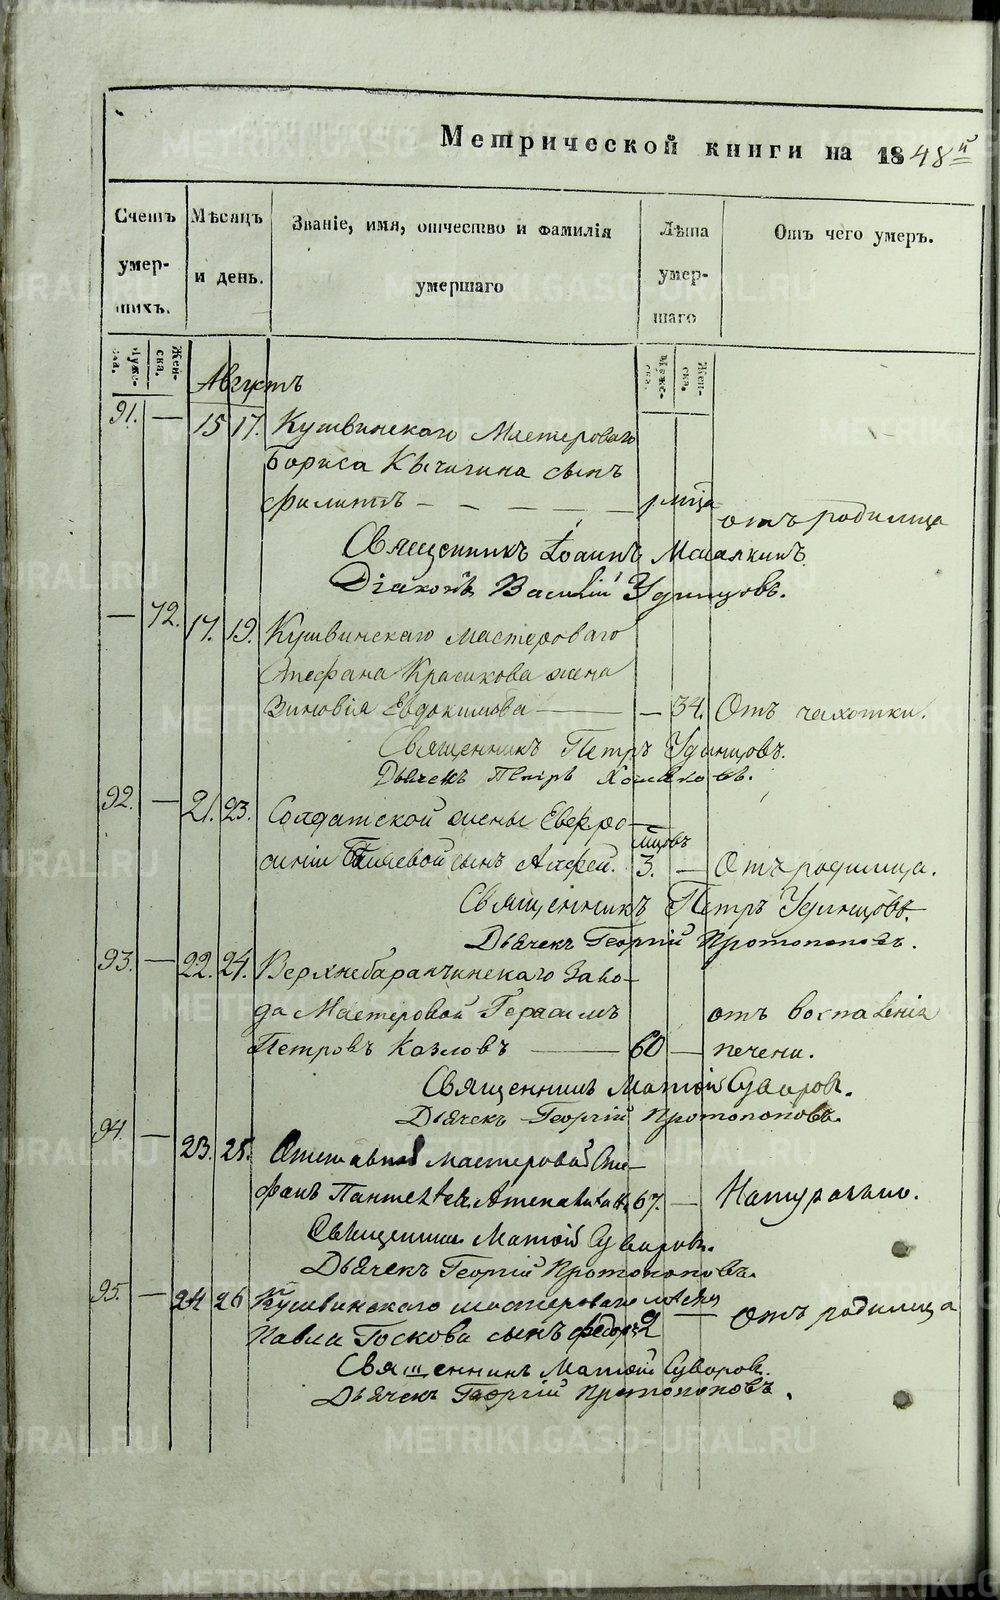 Метрической книги на 1848й
Счетъ умер- шихъ.
Мѣсяцъ и день.
Званіе, имя, отчество и фамилія умершаго
Лѣта умер- шаго
Отъ чего умеръ.
Муже- ска.
Жен- ска.
Муже- ска.
Жен- ска.
Августъ
91. — 15 17. Кушвинскаго Мастероваго
Бориса Кычигина сынъ
Филиппъ — — — — — 1 мца отъ родимца
Священникъ Іоаннъ
Діаконъ Василій Удинцовъ.
— 72. 17. 19. Кушвинскаго мастероваго
Стефана Красикова жена
Зиновія Евдокимова — — 34. Отъ чахотки.
Священникъ Петръ Удинцовъ.
Дьячекъ Петръ Хомяковъ.
92. — 21. 23. Солдатской жены Евфро-
синіи сынъ Алфей. 3. мцовъ — Отъ родимца.
Священникъ Петръ Удинцовъ.
Дьячекъ Георгій Протопоповъ.
93. — 22. 24. Верхнебаранчинскаго Заво-
да Мастеровой Герасимъ отъ воспаленія
Петровъ Козловъ — 60 — печени.
Священникъ Матѳій Суворовъ.
Дьячекъ Георгій Протопоповъ.
94. — 23. 25. Отставной мастеровой Сте-
фанъ 67. — Натурально.
Священникъ Матѳій Суворовъ.
Дьячекъ Георгій Протопоповъ.
95. — 24 26 Кушвинскаго мастероваго мѣсяц
Павла Госкова сынъ Федоръ 2 — отъ родимца
Священникъ Матѳій Суворовъ.
Дьячекъ Георгій Протопоповъ.
METRIKI.GASO-URAL.RU